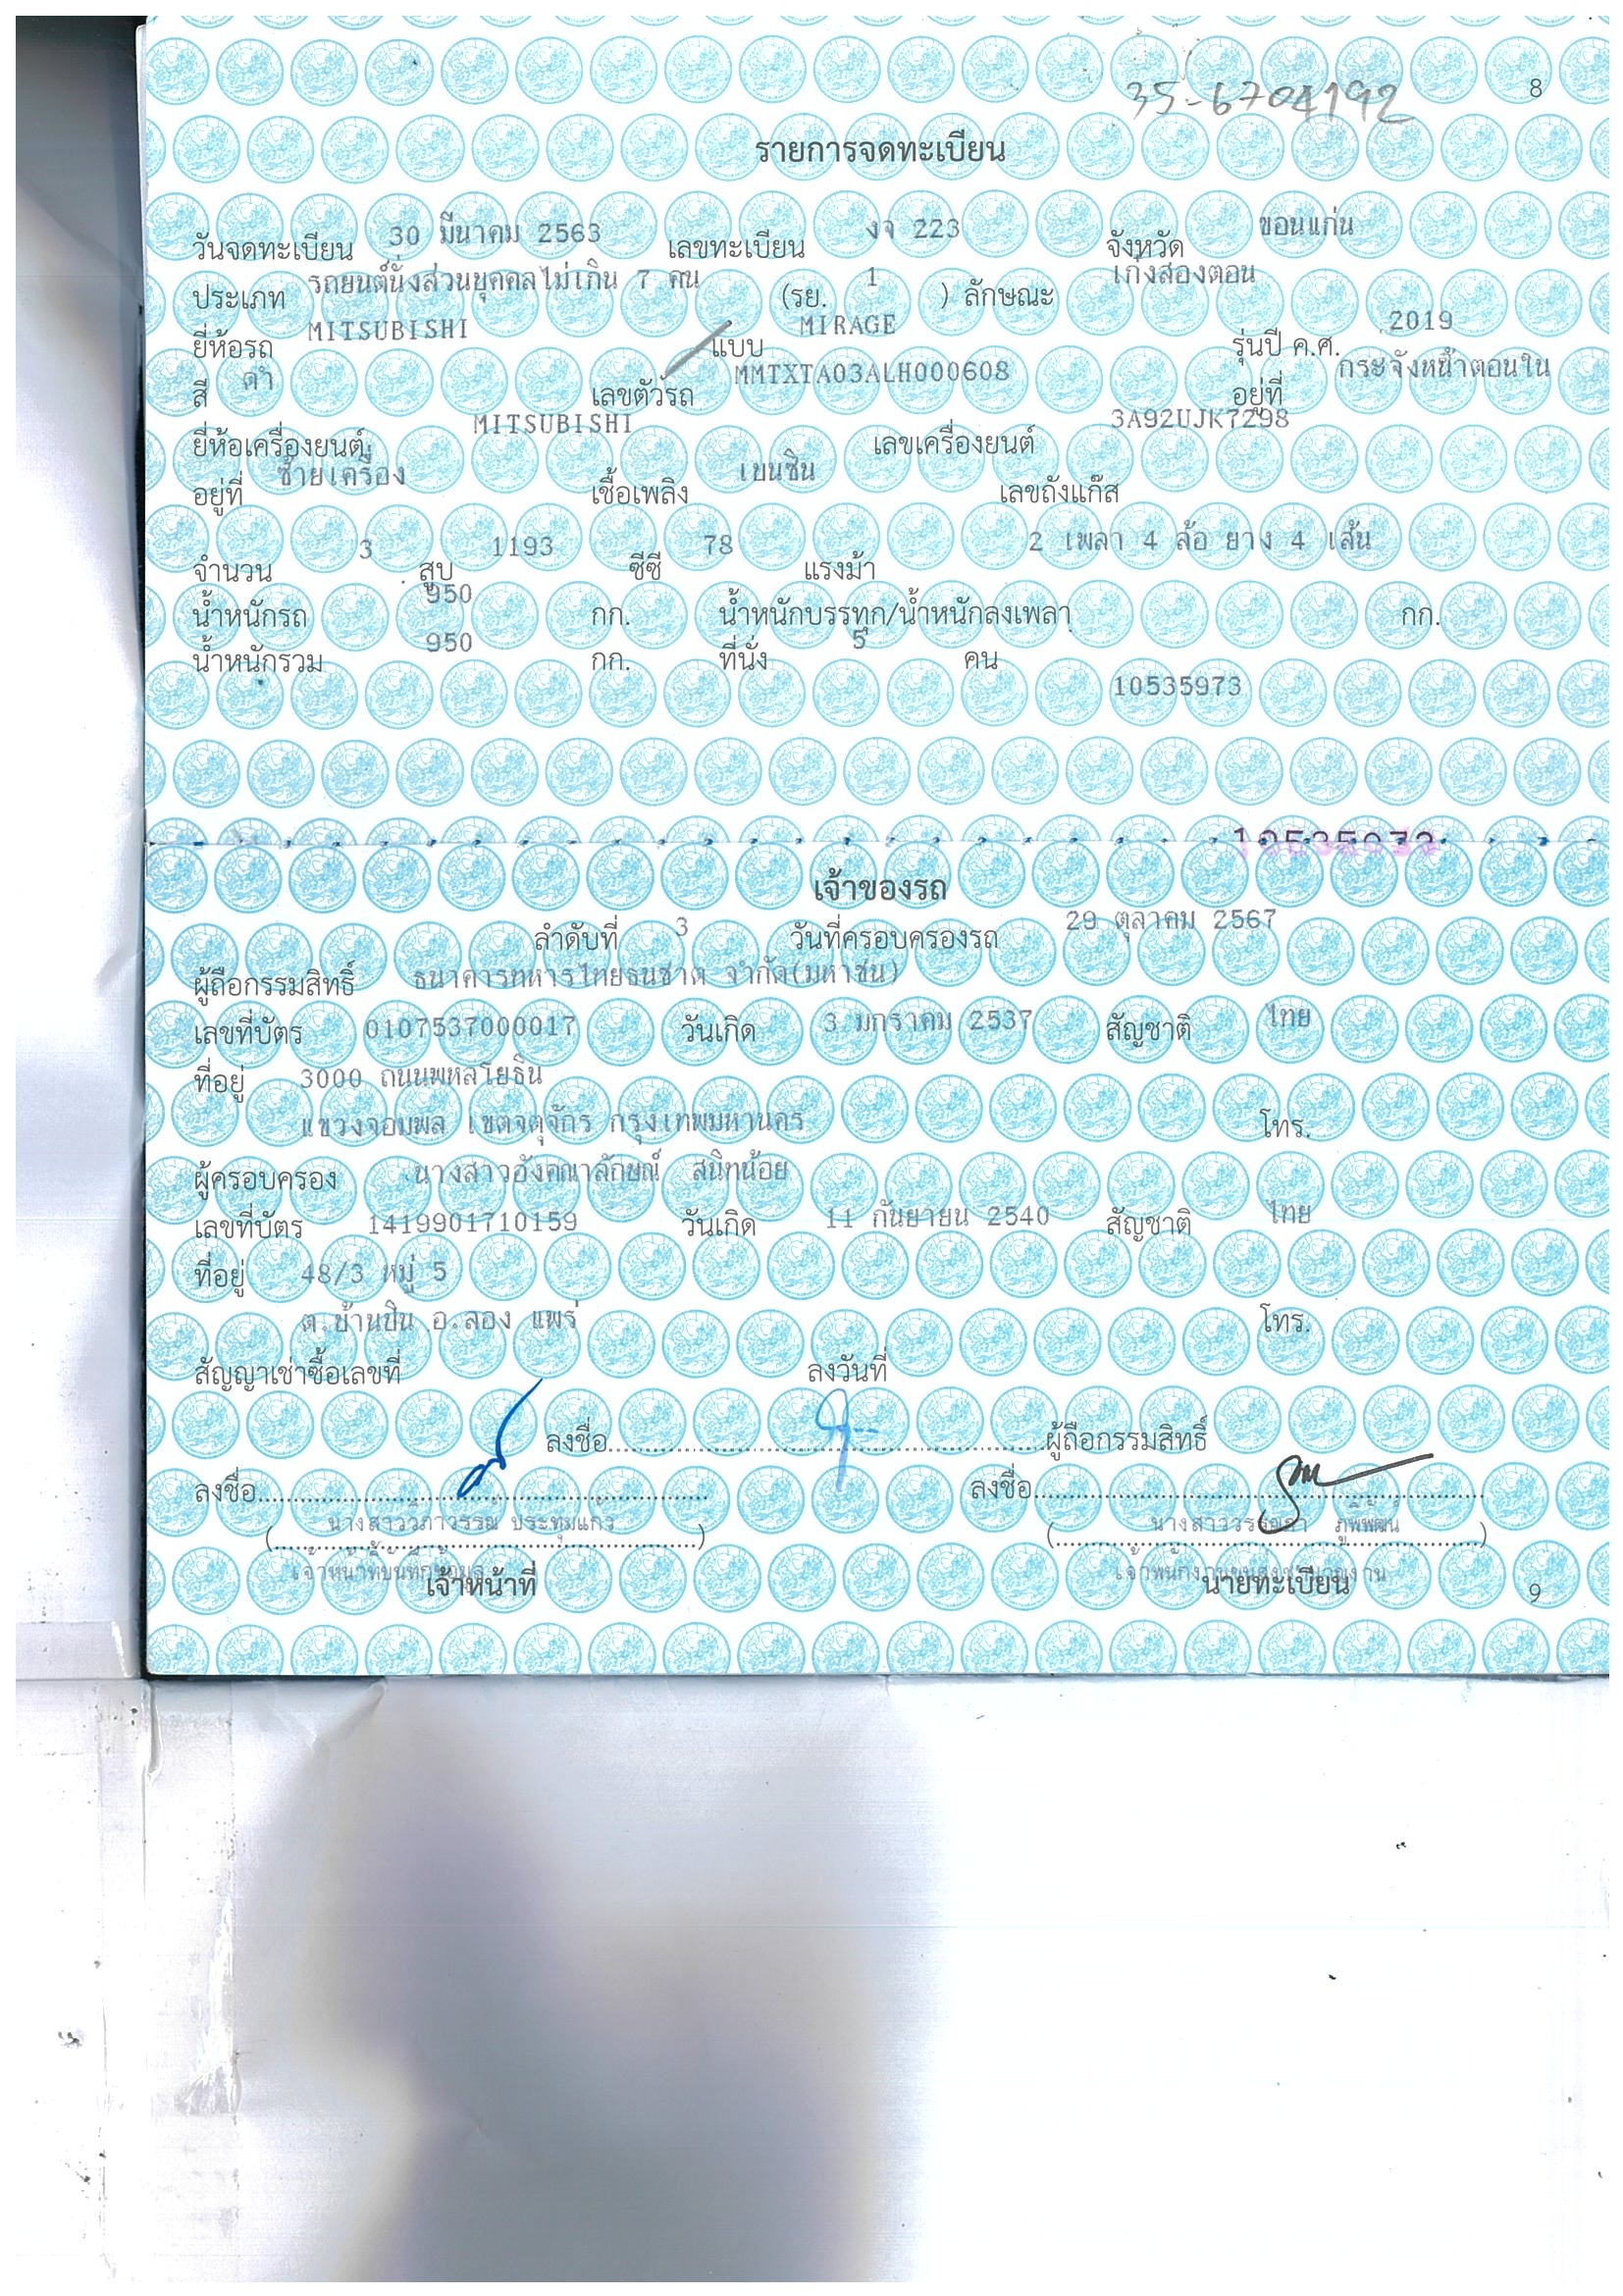 35-6704192
8
รายการจดทะเบียน
วันจดทะเบียน 30 มีนาคม 2563 เลขทะเบียน งจ 223 จังหวัด ขอนแก่น
ประเภท รถยนต์นั่งส่วนบุคคลไม่เกิน 7 คน (รย. 1 ) ลักษณะ เก๋งสองตอน
ยี่ห้อรถ MITSUBISHI แบบ MIRAGE รุ่นปี ค.ศ. 2019
สี ดำ เลขตัวรถ MMTXTA03ALH000608 อยู่ที่ กระจังหน้าตอนใน
ยี่ห้อเครื่องยนต์ MITSUBISHI เลขเครื่องยนต์ 3A92UJK7298
อยู่ที่ ซ้ายเครื่อง เชื้อเพลิง เบนซิน เลขถังแก๊ส
จำนวน 3 สูบ 1193 ซีซี 78 แรงม้า 2 เพลา 4 ล้อ ยาง 4 เส้น
น้ำหนักรถ 950 กก. น้ำหนักบรรทุก/น้ำหนักลงเพลา กก.
น้ำหนักรวม 950 กก. ที่นั่ง 5 คน
10535973
10535973
เจ้าของรถ
ลำดับที่ 3 วันที่ครอบครองรถ 29 ตุลาคม 2567
ผู้ถือกรรมสิทธิ์ ธนาคารทหารไทยธนชาต จำกัด(มหาชน)
เลขที่บัตร 0107537000017 วันเกิด 3 มกราคม 2537 สัญชาติ ไทย
ที่อยู่ 3000 ถนนพหลโยธิน
แขวงจอมพล เขตจตุจักร กรุงเทพมหานคร โทร.
ผู้ครอบครอง นางสาวอังคณาลักษณ์ สนิทน้อย
เลขที่บัตร 1419901710159 วันเกิด 11 กันยายน 2540 สัญชาติ ไทย
ที่อยู่ 48/3 หมู่ 5
ต.บ้านปิน อ.ลอง แพร่ โทร.
สัญญาเช่าซื้อเลขที่ ลงวันที่
ลงชื่อ ผู้ถือกรรมสิทธิ์
ลงชื่อ ลงชื่อ
(นางสาววิภาวรรณ ประทุมแก้ว) (นางสาววรรณภา ภูพิพัฒน์)
เจ้าหน้าที่บันทึกข้อมูล เจ้าพนักงานขนส่งชำนาญงาน
เจ้าหน้าที่ นายทะเบียน
9